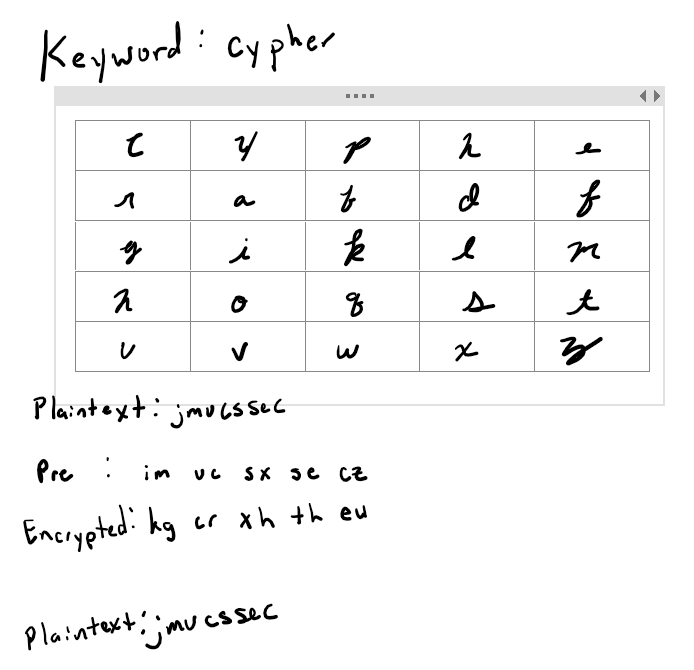 Keyword: cypher
c y p h e
r a b d f
g i k l m
n o q s t
u v w x z
Plaintext: jmucssec
Pre : im uc sx se cz
Encrypted: kg cr xh th eu
Plaintext: jmucssec